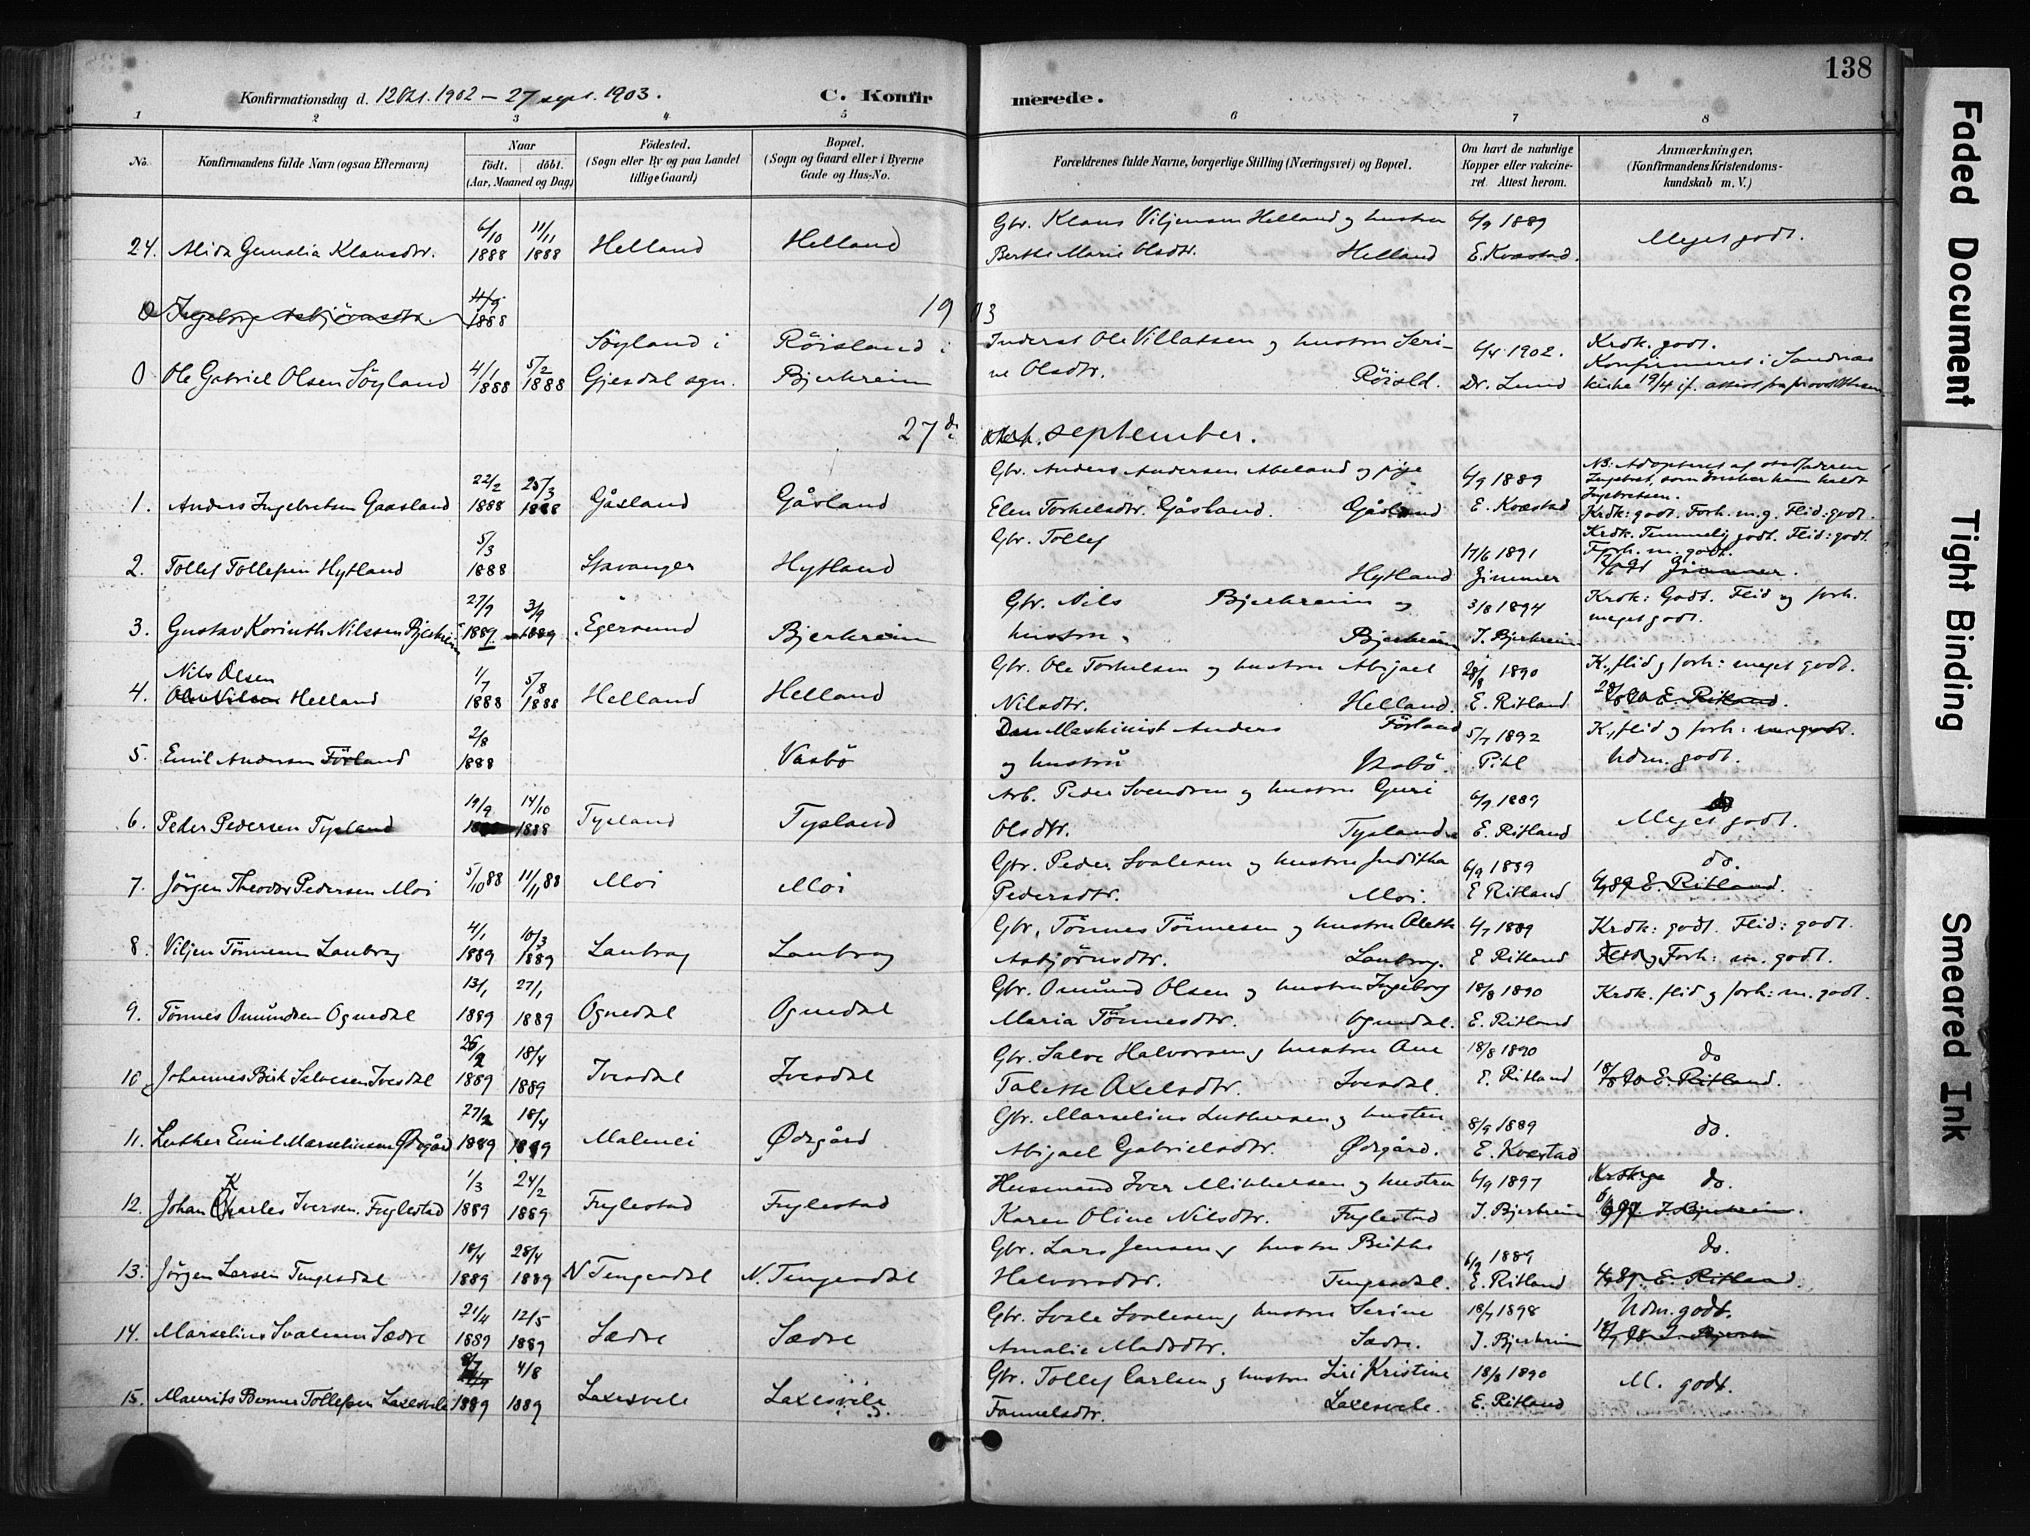 138
Konfirmationsdag d. 12 Okt. 1902 – 27 sept. 1903.
C. Konfirmerede.
1 2 3 4 5 6 7 8
No.
Konfirmandens fulde Navn (ogsaa Efternavn)
Naar
født. døbt.
(Aar, Maaned og Dag)
Fødested.
(Sogn eller By og paa Landet
tillige Gaard)
Bopæl.
(Sogn og Gaard eller i Byerne
Gade og Hus-No.
Forældrenes fulde Navne, borgerlige Stilling (Næringsvei) og Bopæl.
Om havt de naturlige
Kopper eller vakcine-
ret. Attest herom.
Anmærkninger,
(Konfirmandens Kristendoms-
kundskab m. V.)
6/10 11/11 Gbr. Klaus Viljemsen Helland og hustru 6/9 1889
24. Alida Klausdtr. 1888 1888 Helland Helland Berthe Marie Olsdtr. Helland E. Kvæstad. Meget godt.
1888
1903
Søyland i Røisland i Inderst Ole Villatsen og hustru Seri- 6/4 1902. Krdk. godt.
Konfirmeret i Sandnæs
0 Ole Gabriel Olsen Søyland 4/1 1888 5/2 1888 Gjesdal sgn. Bjerkreim ne Olsdtr. Røisld. Dr. Lund kirke 19/4 if. attest fra provst
27de september.
22/2 25/3 Gbr. Anders Andersen Abeland og pige 6/9 1889 NB: Adopteret af stedfaderen
1. Anders Ingebretsen Gaasland 1888 1888 Gåsland Gåsland Elen Torkelsdtr. Gåsland. Gåsland E. Kvæstad
Ingebretsen.
Krdk: godt. Forh. m.g. Flid: godt.
5/3 Gbr. Tollef 17/6 1891 Krdk. Temmelig godt. Flid: godt.
Forh. m. godt.
2. Tollef Tollefsen Hytland 1888 Stavanger Hytland Hytland Zimmer
27/7 3/9 Gbr. Nils Bjerkreim og 3/8 1894 Krdk: Godt. Flid og forh.
meget godt.
3. Gustav Korinth Nilssen Bjerkreim 1889 1889 Egersund Bjerkreim hustru Bjerkreim J. Bjerkreim
Nils Olsen 1/7 5/8 Gbr. Ole Torkelsen og hustru Abigael 28/8 1890 K., flid og forh: meget godt.
4. Ole Nilsen Helland 1888 1888 Helland Helland Nilsdtr. Helland. E. Ritland 28/8 90 E. Ritland.
2/8 Maskinist Anders Førland 5/7 1892 K., flid og forh: m. godt.
5. Emil Andersen Førland 1888 Vasbø og hustru Vasbø. Pihl Udm. godt.
19/9 14/10 Arb. Peder Svendsen og hustru Guri 6/9 1889 do
6. Peder Pedersen Tysland 1888 Tysland Tysland Olsdtr. Tysland. E. Ritland Meget godt.
Gbr. Peder Svalesen og hustru Juditha 6/9 1889 do.
7. Jørgen Theodor Pedersen Moi 5/10 88 11/11 88 Moi Moi Pedersdtr. Moi. E Ritland 6/9 89 E. Ritland.
4/1 10/3 Gbr. Tønnes Tønnesen og hustru Alette 4/7 1889 Krdk: godt. Flid: godt.
8. Viljen Tønnesen Laubrag 1889 1889 Laubrag Laubrag Asbjørnsdtr. Laubrag. E Ritland Forh: m. godt.
13/1 27/1 Gbr. Omund Olsen og hustru Ingeborg 18/8 1890 Krdk. flid og forh: m. godt.
9. Tønnes Omundsen Ognedal 1889 1889 Ognedal Ognedal Maria Tønnesdtr. Ognedal. E. Ritland
26/2 18/4 Gbr. Salve Halvorsen og hustru Ane 18/8 1890 do
10 Johannes Birk Salvesen Ivesdal 1889 1889 Ivesdal Ivesdal Talette Axelsdtr. Ivesdal. E. Ritland 18/8 90 E. Ritland.
27/2 18/4 Gbr. Marselius Luthersen og hustru 8/9 1889 do.
11. Luther Emil Marseliussen Ødegård 1889 1889 Malmei Ødegård Abigael Gabrielsdtr. Ødegård. E. Kvæstad
K 1/3 24/2 Husmand Iver Mikkelsen og hustru 6/9 1897 do.
12. Johan Charles Iversen Fuglestad 1889 1889 Fuglestad Fuglestad Karen Oline Nilsdtr. Fuglestad J. Bjerkreim J. Bjerkreim.
18/4 28/4 Gbr. Lars Jensen og hustru Berthe 6/9 1889 do.
13. Jørgen Larsen Tengesdal 1889 1889 N Tengesdal N. Tengesdal Halvorsdtr. Tengesdal. E. Ritland 6/9 89. E. Ritland.
21/4 12/5 Gbr. Svale Svalesen og hustru Serine 18/7 1898 Udm. godt.
14. Marselius Svalesen Sædre 1889 1889 Sædre Sædre Amalie Madsdtr. Sædre. J. Bjerkreim
8/7 4/8 Gbr. Tollef Carlsen og hustru Siri Kristine 18/8 1890 M. godt.
15. Maurits Berner Tollefsen Laxesvele 1889 1889 Laxesvele Laxesvele Fannelsdtr. Laxesvele. E. Ritland
Faded Document
Tight Binding
Smeared Ink